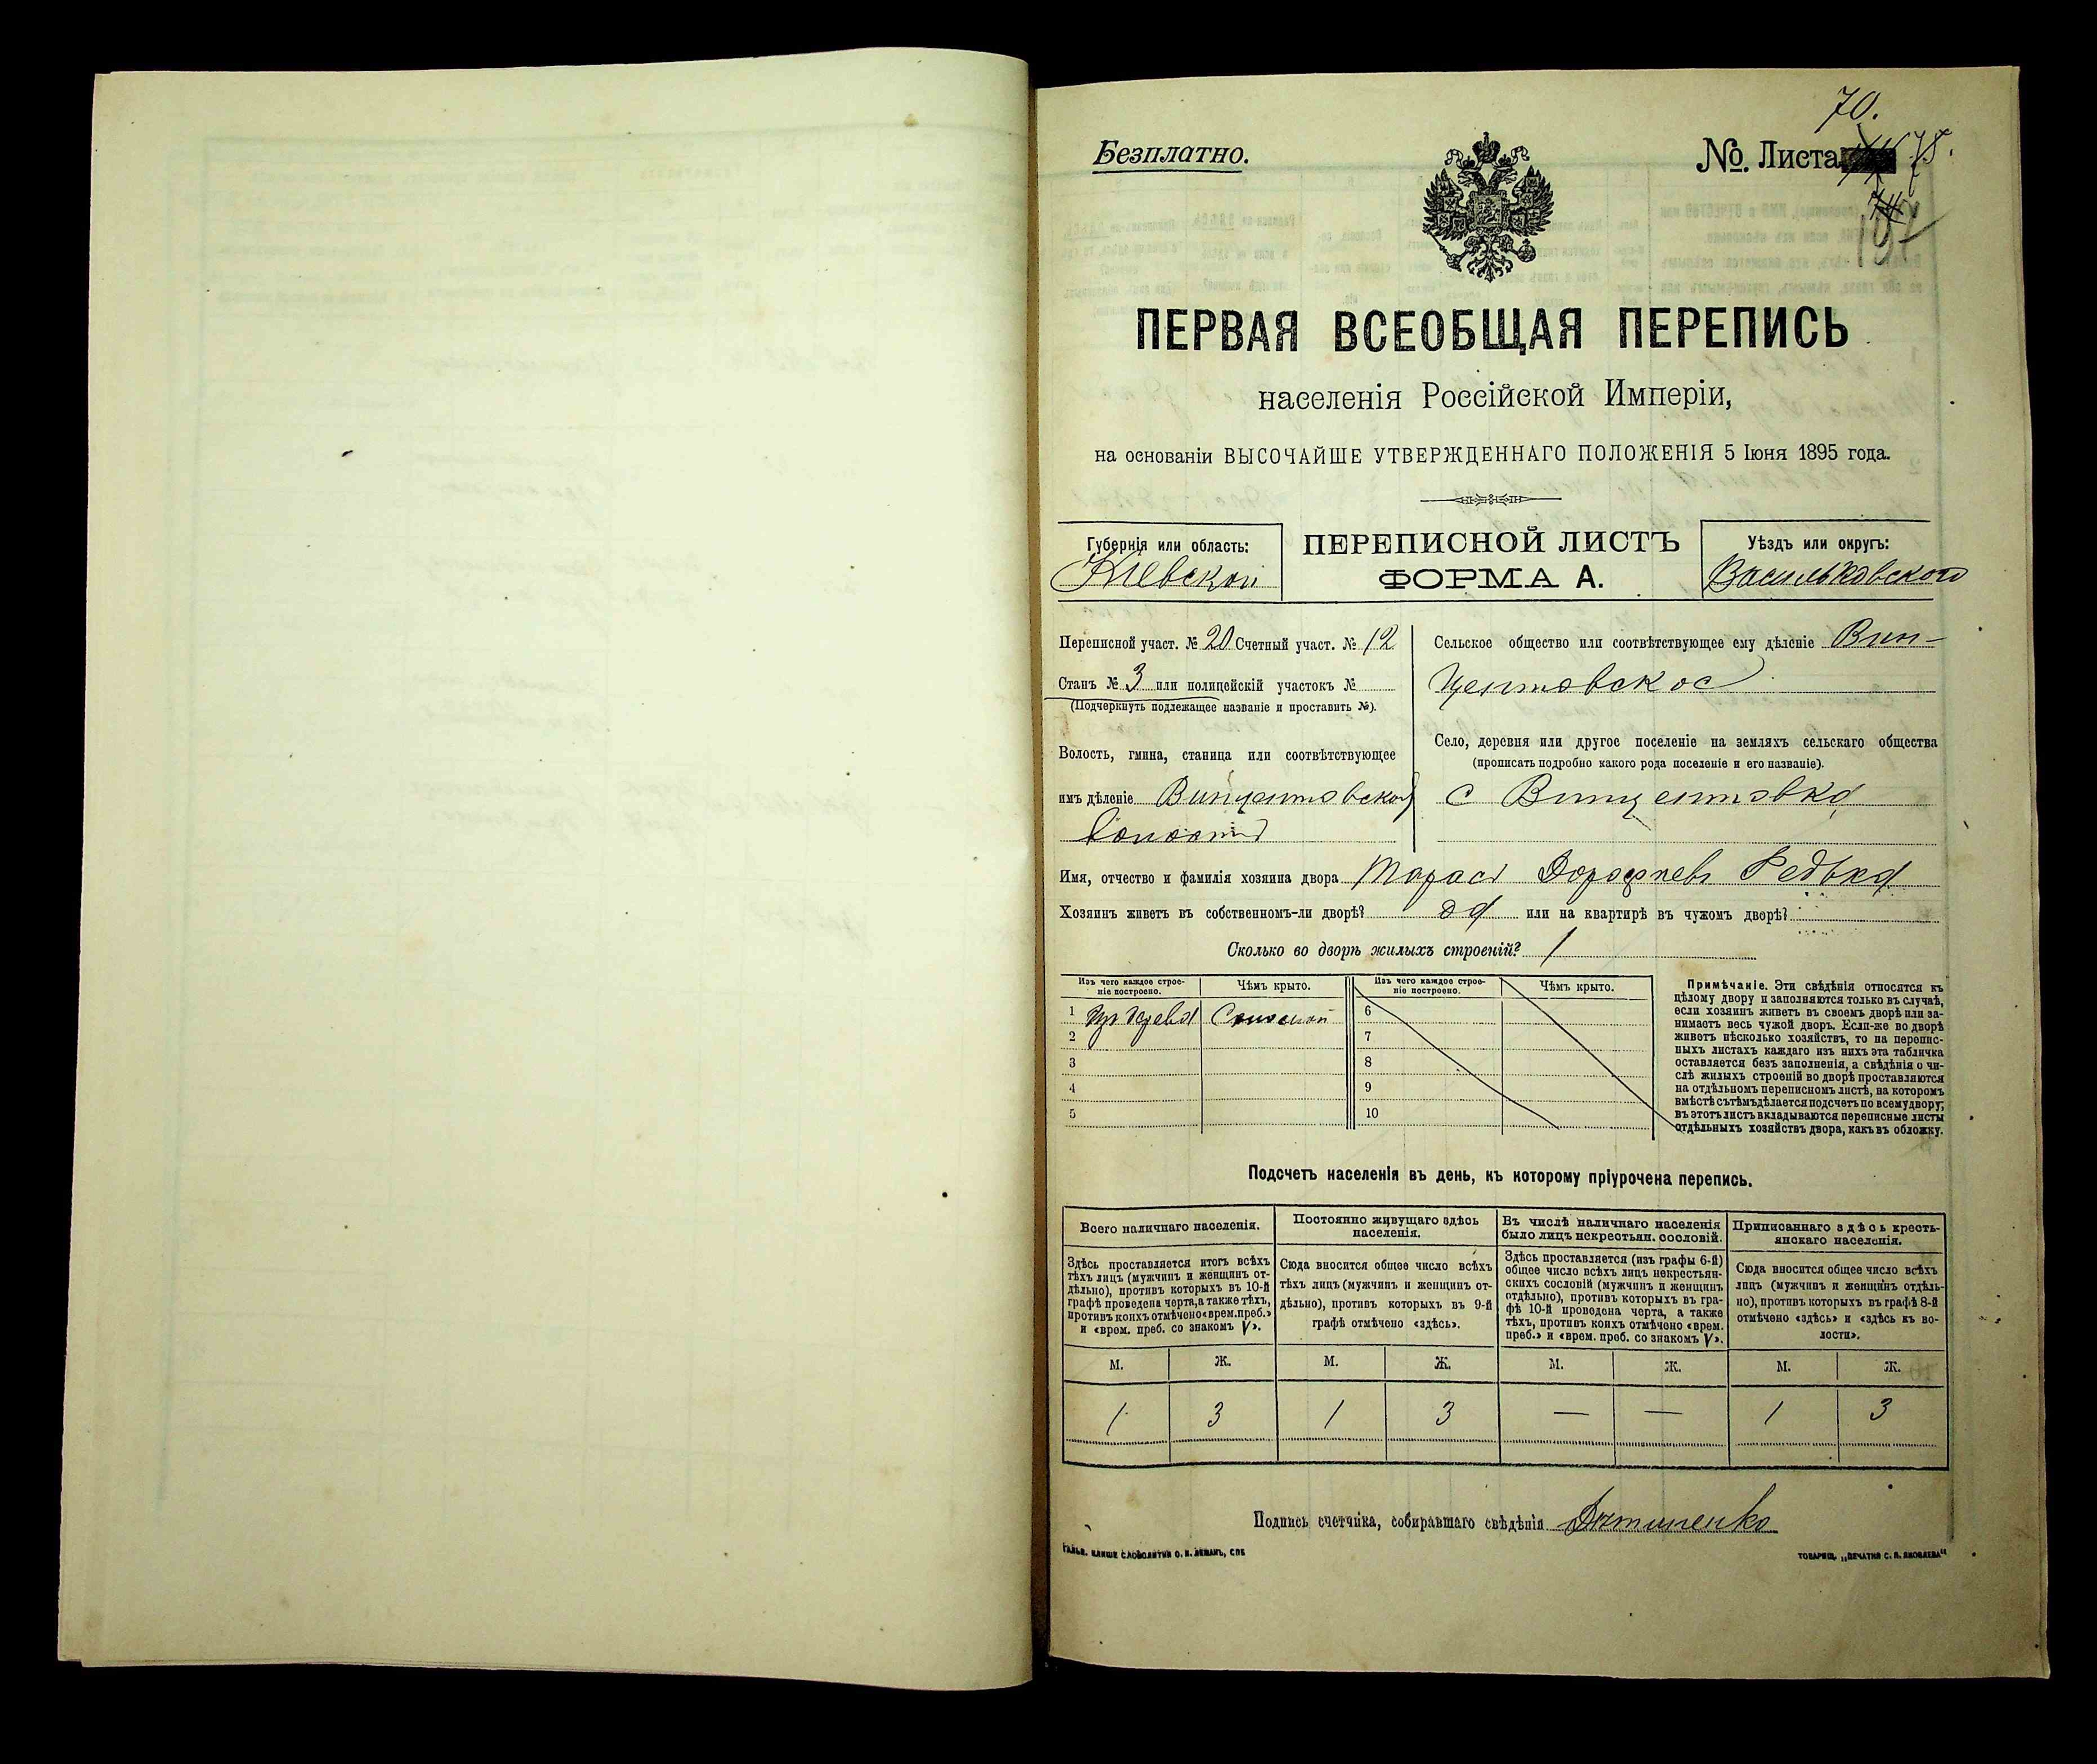 70.
Безплатно.
№. Листа 78.
ПЕРВАЯ ВСЕОБЩАЯ ПЕРЕПИСЬ
населенія Россійской Имперіи,
на основаніи ВЫСОЧАЙШЕ УТВЕРЖДЕННАГО ПОЛОЖЕНІЯ 5 Іюня 1895 года.
Губернія или область:
Кіевской
ПЕРЕПИСНОЙ ЛИСТЪ
ФОРМА А.
Уѣздъ или округъ:
Васильковского
Переписной участ. № 20 Счетный участ. № 12
Станъ № 3 или полицейскій участокъ №
(Подчеркнуть подлежащее названіе и проставить №).
Волость, гмина, станица или соотвѣтствующее
имъ дѣленіе Винцентовской
Волости
Сельское общество или соотвѣтствующее ему дѣленіе Вин-
центовское
Село, деревня или другое поселеніе на земляхъ сельскаго общества
(прописать подробно какого рода поселеніе и его названіе).
с Винцентовка
Имя, отчество и фамилія хозяина двора Тарасъ Дорофеевъ Редька
Хозяинъ живетъ въ собственномъ-ли дворѣ? да или на квартирѣ въ чужомъ дворѣ?
Сколько во дворѣ жилыхъ строеній? 1
Изъ чего каждое строе-
ніе построено.
Чѣмъ крыто.
Изъ чего каждое строе-
ніе построено.
Чѣмъ крыто.
1 Изъ дерева Соломой 6
2 7
3 8
4 9
5 10
Примѣчаніе. Эти свѣдѣнія относятся къ
цѣлому двору и заполняются только въ случаѣ,
если хозяинъ живетъ въ своемъ дворѣ или за-
нимаетъ весь чужой дворъ. Если-же во дворѣ
живетъ нѣсколько хозяйствъ, то на перепис-
ныхъ листахъ каждаго изъ нихъ эта табличка
оставляется безъ заполненія, а свѣдѣнія о чи-
слѣ жилыхъ строеній во дворѣ проставляются
на отдѣльномъ переписномъ листѣ, на которомъ
вмѣстѣ съ тѣмъ дѣлается подсчетъ по всему двору;
въ этотъ листъ вкладываются переписные листы
отдѣльныхъ хозяйствъ двора, какъ въ обложку.
Подсчетъ населенія въ день, къ которому пріурочена перепись.
Всего наличнаго населенія.
Здѣсь проставляется итогъ всѣхъ
тѣхъ лицъ (мужчинъ и женщинъ от-
дѣльно), противъ которыхъ въ 10-й
графѣ проведена черта, а также тѣхъ,
противъ коихъ отмѣчено «врем. преб.»
и «врем. преб. со знакомъ V».
Постоянно живущаго здѣсь
населенія.
Сюда вносится общее число всѣхъ
тѣхъ лицъ (мужчинъ и женщинъ от-
дѣльно), противъ которыхъ въ 9-й
графѣ отмѣчено «здѣсь».
Въ числѣ наличнаго населенія
было лицъ некрестьян. сословій.
Здѣсь проставляется (изъ графы 6-й)
общее число всѣхъ лицъ некрестьян-
скихъ сословій (мужчинъ и женщинъ
отдѣльно), противъ которыхъ въ гра-
фѣ 10-й проведена черта, а также
тѣхъ, противъ коихъ отмѣчено «врем.
преб.» и «врем. преб. со знакомъ V».
Приписаннаго здѣсь кресть-
янскаго населенія.
Сюда вносится общее число всѣхъ
лицъ (мужчинъ и женщинъ отдѣль-
но), противъ которыхъ въ графѣ 8-й
отмѣчено «здѣсь» и «здѣсь къ во-
лости».
М. Ж. М. Ж. М. Ж. М. Ж.
1 3 1 3 — — 1 3
Подпись счетчика, собиравшаго свѣдѣнія
ГАЛЬВ. КЛИШЕ СЛОВОЛИТНИ О. И. ЛЕМАНЪ, СПБ
ТОВАРИЩ. „ПЕЧАТНЯ С. П. ЯКОВЛЕВА"